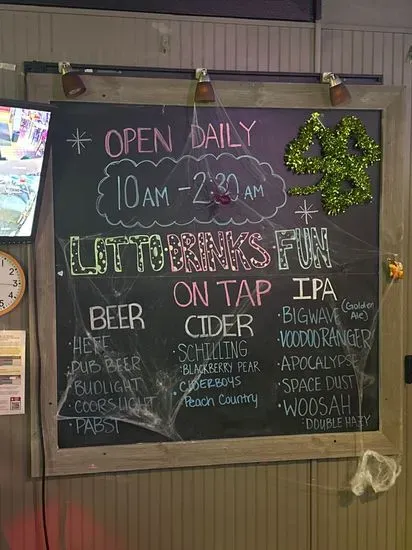 OPEN DAILY
10AM - 2:30 AM
LOTTO DRINKS FUN
ON TAP
BEER
HEFE
PUB BEER
BUDLIGHT
COORS LIGHT
PABST
CIDER
SCHILLING
BLACKBERRY PEAR
CIDERBOYS
Peach Country
IPA
BIGWAVE (Golden Ale)
VOODOO RANGER
APOCALYPSE
SPACE DUST
WOOSAH
DOUBLE HAZY